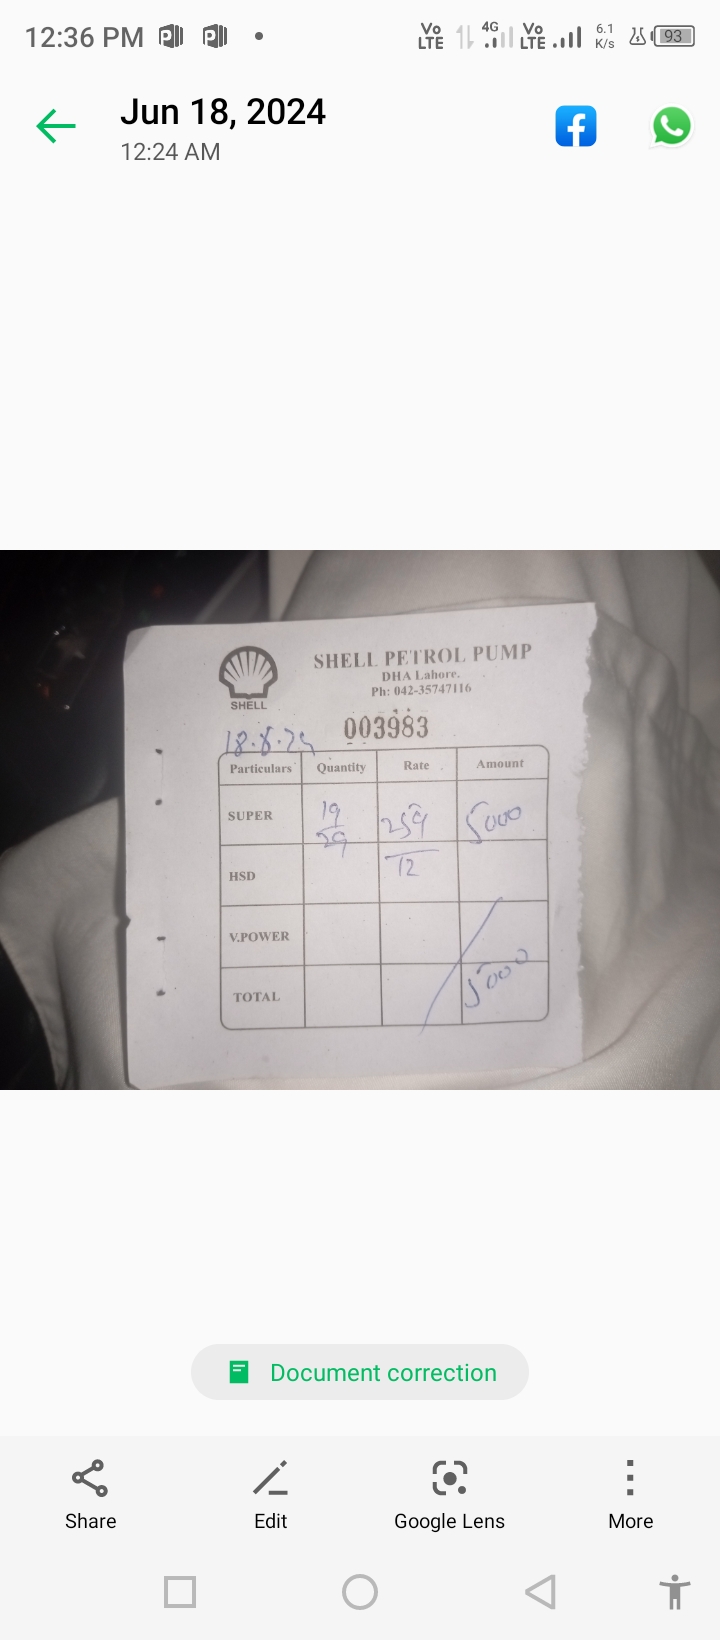 12:36 PM
Vo LTE 4G Vo LTE 6.1 K/s 93
Jun 18, 2024
12:24 AM
SHELL
SHELL PETROL PUMP
DHA Lahore.
Ph: 042-35747116
003983
18.6.24
Particulars Quantity Rate Amount
SUPER 19 259 5000
29 12
HSD
V.POWER
TOTAL 5000
Document correction
Share Edit Google Lens More